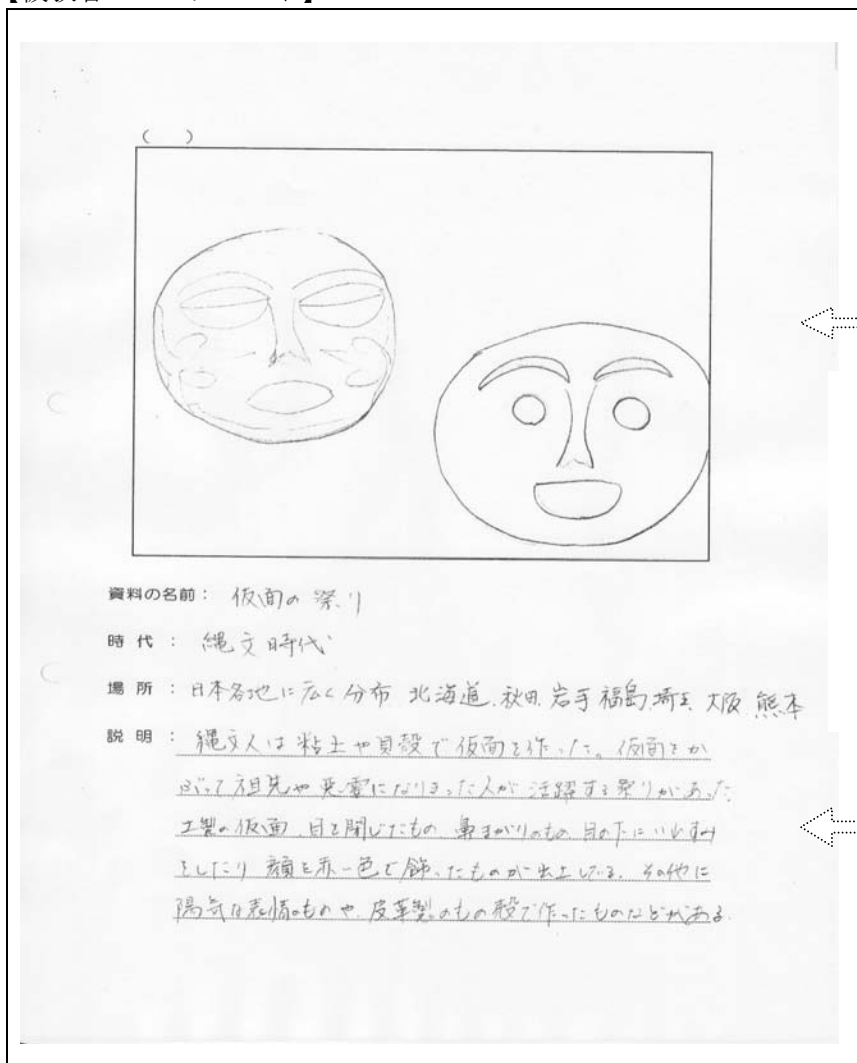 (　)
資料の名前： 仮面の祭り
時 代 ： 縄文時代
場 所 ： 日本各地に広く分布 北海道、秋田、岩手 福島、埼玉、大阪 熊本
説 明 ： 縄文人は粘土や貝殻で仮面を作った。仮面をか
ぶって祖先や悪霊になりきった人が活躍する祭りがあった
土製の仮面、目を閉じたもの、鼻まがりのもの、目の下にいれずみ
をしたり 顔を赤一色で飾ったものが出土している。その他に
陽気な表情のものや、皮革製のもの 殻で作ったものなどがある。